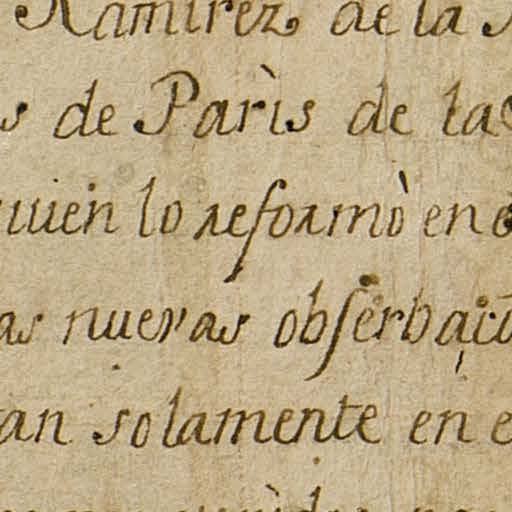 Ramirez, de la
s de Parìs de la
uien lo reformò en e
as nuevas obserbaci
an solamente en e